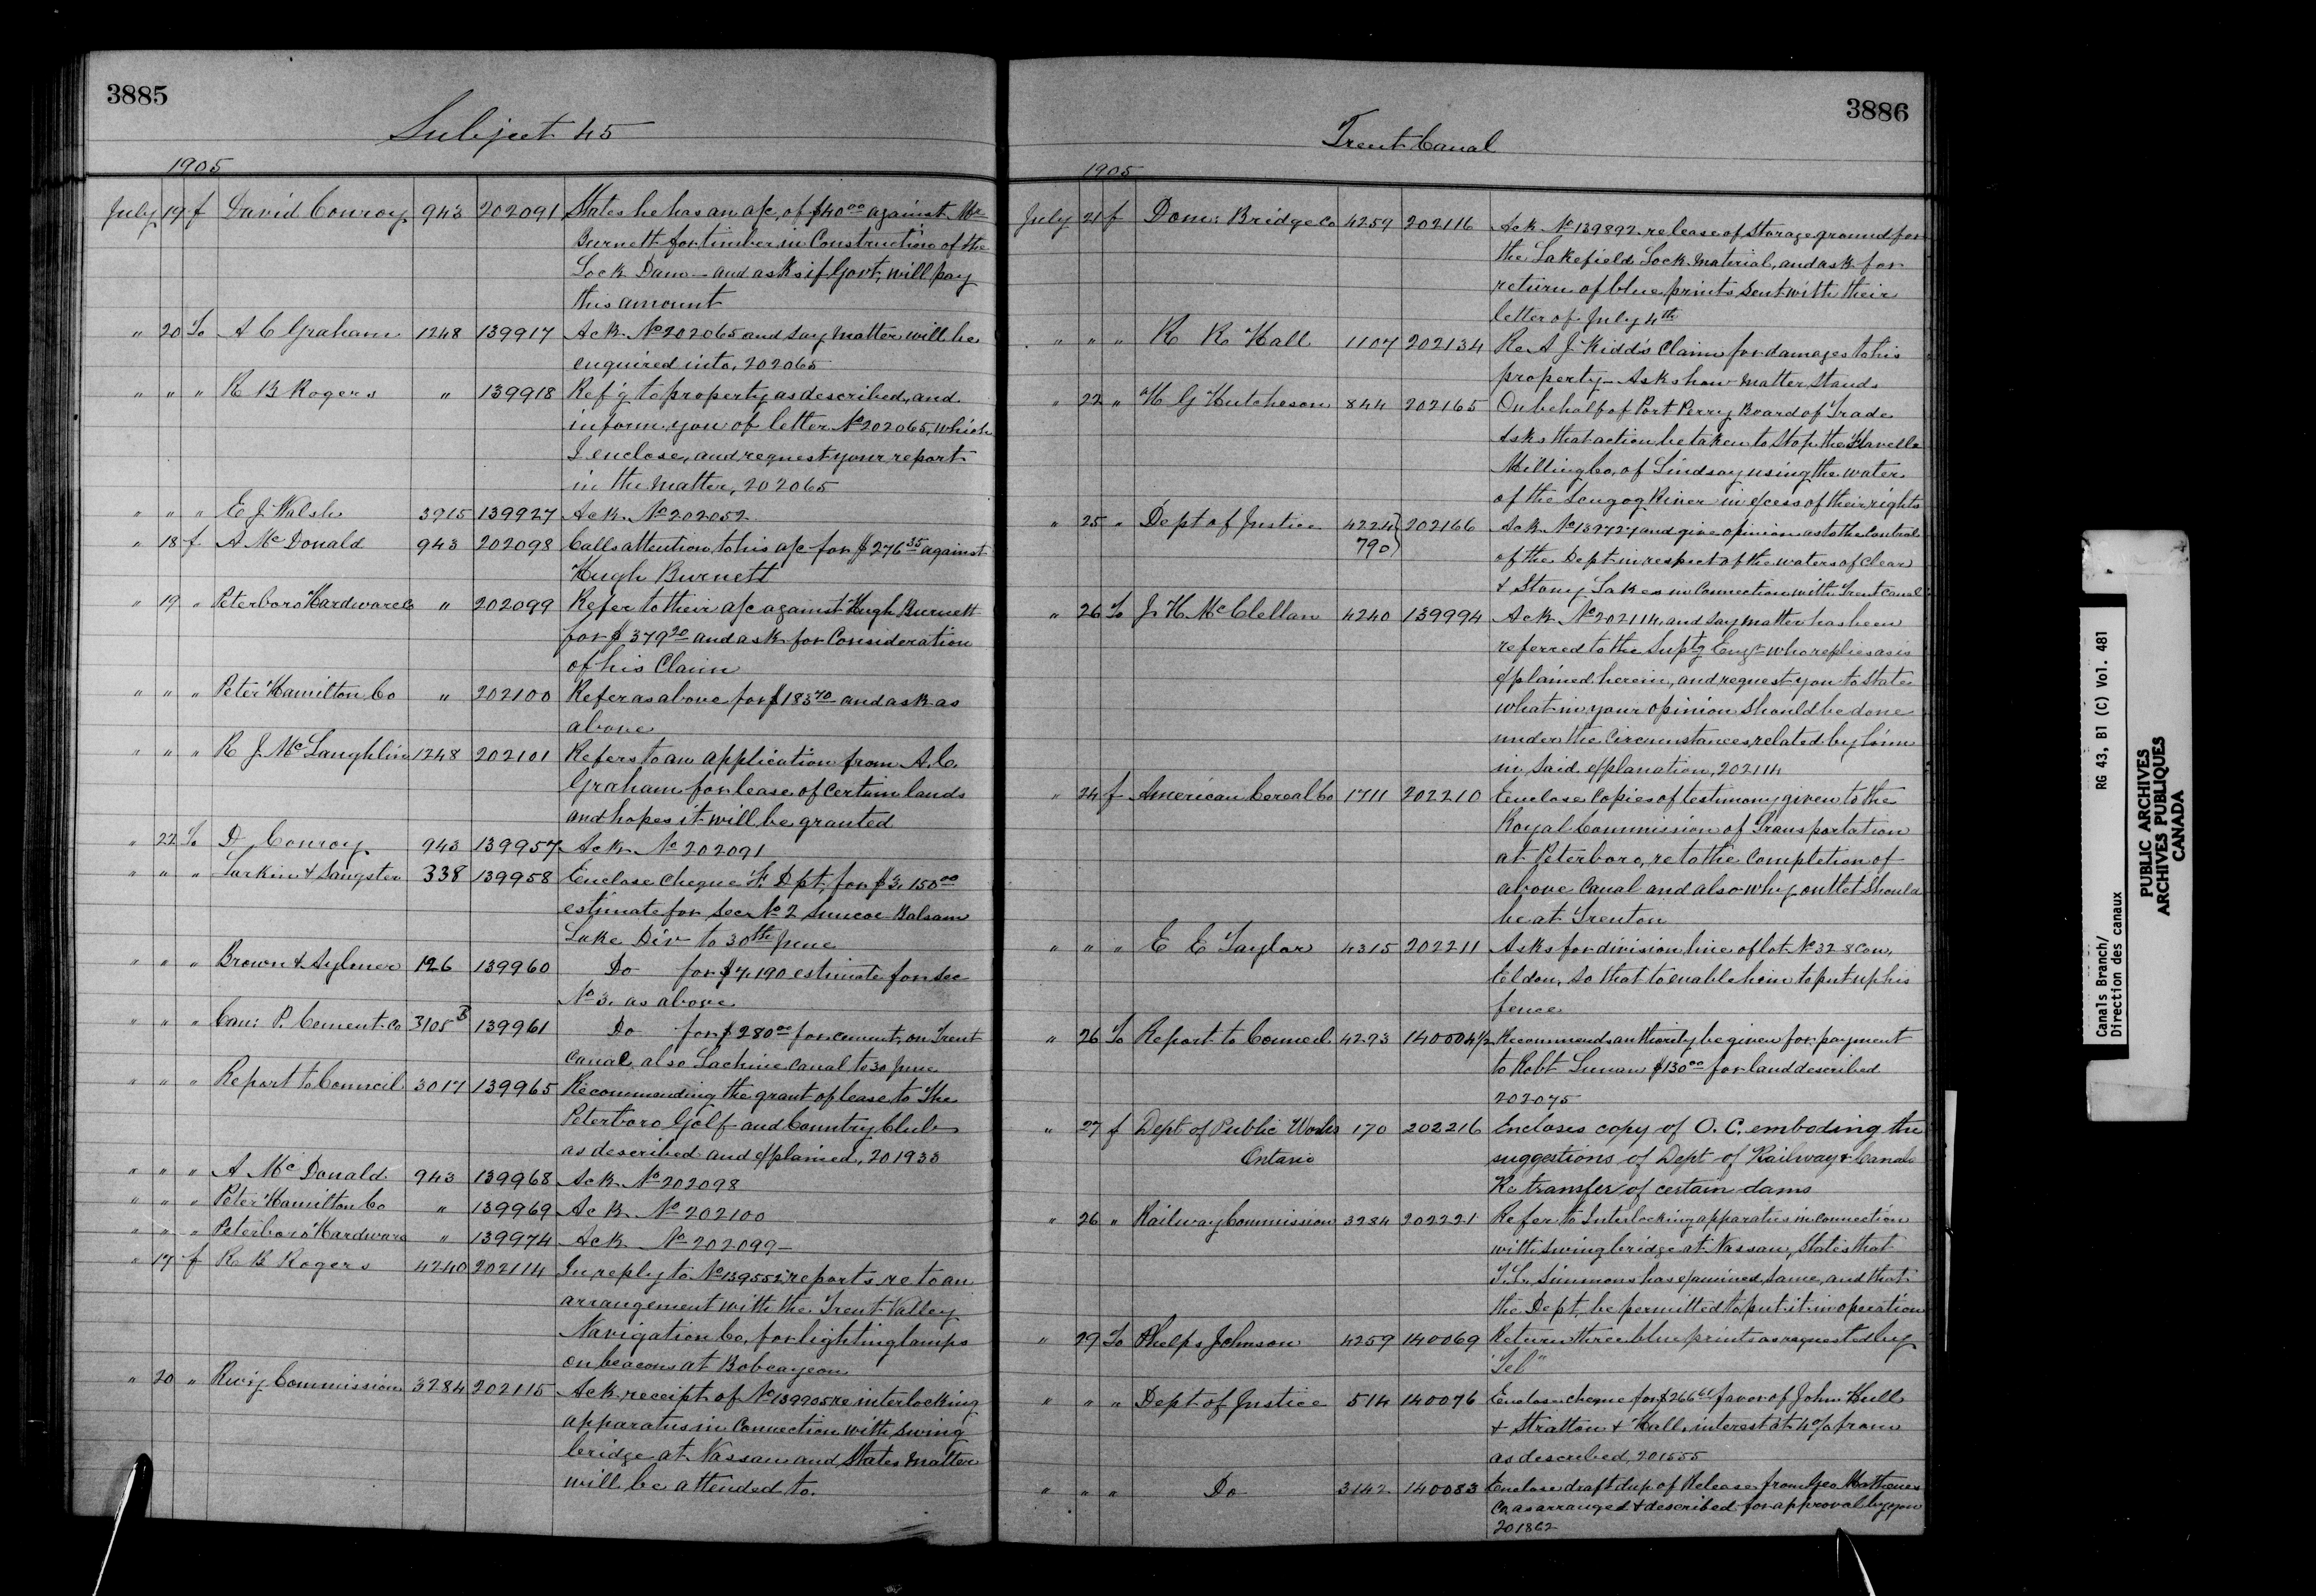 3885
Subject 45
1905
July 19 f David Conroy 943 202091 States he has an a/c, of $40.00 against Mr
Burnett for timber in Construction of the
Lock Dam – and asks if Govt, will pay
this amount
" 20 To A C Graham 1248 139917 Ack. No 202065 and say matter will be
enquired into, 202065
" " " R B Rogers " 139918 Ref'g to property as described, and
inform you of letter No 202065, which
I enclose, and request your report
in the matter, 202065
" " " E J Walsh 3915 139927 Ack. No 202052
" 18 f A McDonald 943 202098 Calls attention to his a/c for $276.35 against
Hugh Burnett
" 19 " Peterboro Hardware Co " 202099 Refer to their a/c against Hugh Burnett
for $379.20 and ask for Consideration
of his Claim
" " " Peter Hamilton Co " 202100 Refer as above for $183.70 and ask as
above
" " " R J McLaughlin 1248 202101 Refers to an application from A. C.
Graham for lease of certain lands
and hopes it will be granted
" 22 To D Conroy 943 139957 Ack No 202091
" " " Larkin & Sangster 338 139958 Enclose cheque F. Dpt, for $3,150.00
estimate for Sec No 2 Simcoe Balsam
Lake Div to 30th June
" " " Brown & Aylmer 126 139960 Do for $7,190 estimate for Sec
No 3. as above
" " " Can: P. Cement Co 3105 B 139961 Do for $280.00 for cement, on Trent
Canal, also Lachine Canal to 30 June
" " " Report to Council 3017 139965 Recommending the grant of lease to The
Peterboro Golf and Country Club
as described and explained, 201933
" " " A McDonald 943 139968 Ack No 202098
" " " Peter Hamilton Co " 139969 Ack No 202100
" " " Peterboro Hardware " 139974 Ack No 202099 –
" 17 f R B Rogers 4240 202114 In reply to No 139552 reports re to an
arrangement with the Trent Valley
Navigation Co, for lighting lamps
on beacons at Bobcaygeon
" 20 " Rwy Commission 3284 202115 Ack receipt of No 139905 re interlocking
apparatus in connection with swing
bridge at Nassau and States matter
will be attended to.
3886
Trent Canal
1905
July 21 f Dom: Bridge Co 4259 202116 Ack No 139892 release of Storage ground for
the Lakefield Lock material, and ask for
return of blue prints sent with their
letter of July 4th
" " " R R Hall 1107 202134 Re A J Kidd's Claim for damages to his
property – Asks how matter stands
" 22 " H G Hutcheson 844 202165 On behalf of Port Perry Board of Trade
Asks that action be taken to stop the Flavelle
Milling Co, of Lindsay using the water
of the Scugog River in excess of their rights
" 25 " Dept of Justice 4224} 202166 Ack No 139727 and give opinion as to the Control
790} of the Dept in respect of the waters of Clear
& Stony Lakes in Connection with Trent Canal
" 26 To J H McClellan 4240 139994 Ack No 202114, and say matter has been
referred to the Suptg Engr who replies as is
explained herein, and request you to state
what in your opinion should be done
under the circumstances related by him
in said explanation, 202114
" 24 f American Cereal Co 1711 202210 Enclose Copies of testimony given to the
Royal Commission of Transportation
at Peterboro, re to the completion of
above Canal and also why outlet should
be at Trenton
" " " E E Taylor 4315 202211 Asks for division line of lot No 32 8 Con,
Eldon, so that to enable him to put up his
fence
" 26 To Report to Council 4293 140004½ Recommends authority be given for payment
to Robt Lunan $130.00 for land described
202075
" 27 f Dept of Public Works 170 202216 Encloses copy of O. C. emboding the
Ontario suggestions of Dept of Railway & Canals
Re transfer of certain dams
" 26 " Railway Commission 3284 202221 Refer to Interlocking apparatus in connection
with swing bridge at Nassau, States that
T. L. Simmons has examined same, and that
the Dept, be permitted to put it in operation
" 29 To Phelps Johnson 4259 140069 Return three blue prints as requested by
"Tel"
" " " Dept of Justice 514 140076 Enclose cheque for $266 favor of John Hull
& Stratton & Hall, interest at 4% from
as described, 201555
" " " Do 3142 140083 Enclose draft dup of Release from Geo Matthews
Co as arranged & described for approval by you
201862
Canals Branch/
Direction des canaux
RG 43, B1 (C) Vol. 481
PUBLIC ARCHIVES
ARCHIVES PUBLIQUES
CANADA